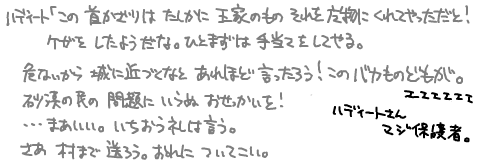 ハディート「この首かざりは たしかに 王家のもの それを友物にくれてやっただと!
ケガをしたようだな。ひとまずは手当てをしてやる。
危ないから 城に近づくなと あれほど言ったろう!このバカものどもが。
砂漠の民の 問題に いらぬ おせっかいを!
…まあいい。いちおう礼は言う。
さあ 村まで 送ろう。おれに ついてこい。
エエエエエエ
ハディートさん
マジ保護者。